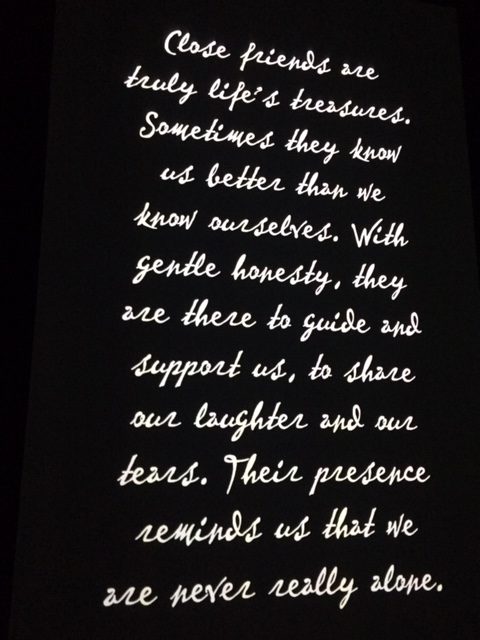 Close friends are
truly life's treasures.
Sometimes they know
us better than we
know ourselves. With
gentle honesty, they
are there to guide and
support us, to share
our laughter and our
tears. Their presence
reminds us that we
are never really alone.